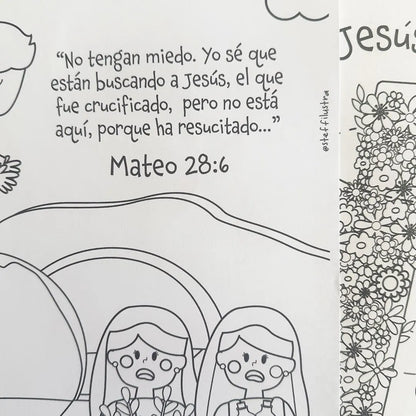 “No tengan miedo. Yo sé que
están buscando a Jesús, el que
fue crucificado, pero no está
aquí, porque ha resucitado...”
Mateo 28:6
@steffilustra
Jesús